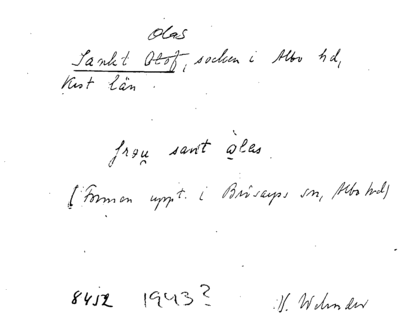 Olas
Sankt Olof, socken i Albo hd,
Krist län
frau sant àlas
(Formen uppt. i Brösarps sn, Albo hd)
8452 1943?